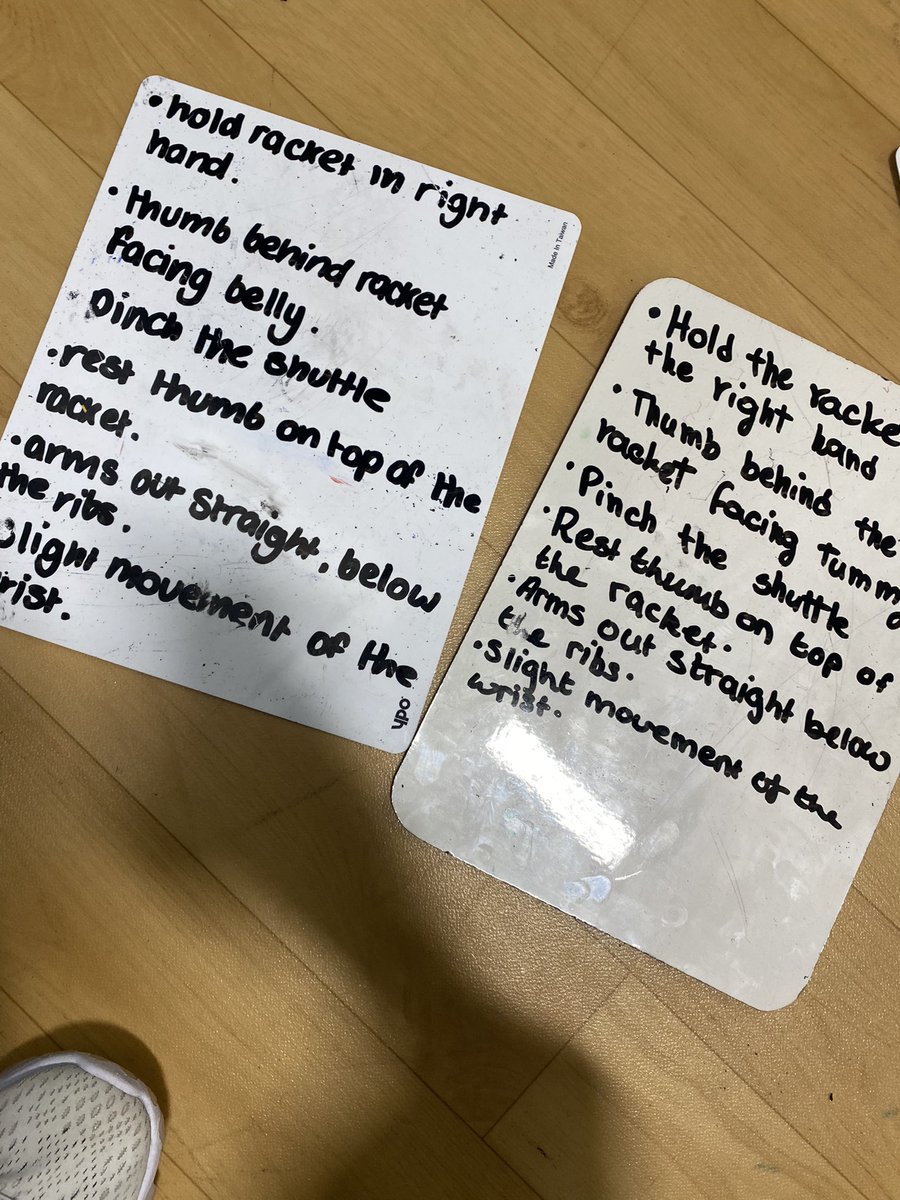 • hold racket in right
hand.
• thumb behind racket
facing belly.
Pinch the shuttle
• rest thumb on top of the
racket.
• arms out straight, below
the ribs.
Slight movement of the
rist.
Made In Taiwan
ypo
• Hold the racke
the right hand
• Thumb behind the
racket facing tummy
• Pinch the shuttle
• Rest thumb on top of
the racket.
• Arms out straight below
the ribs.
• Slight movement of the
wrist.